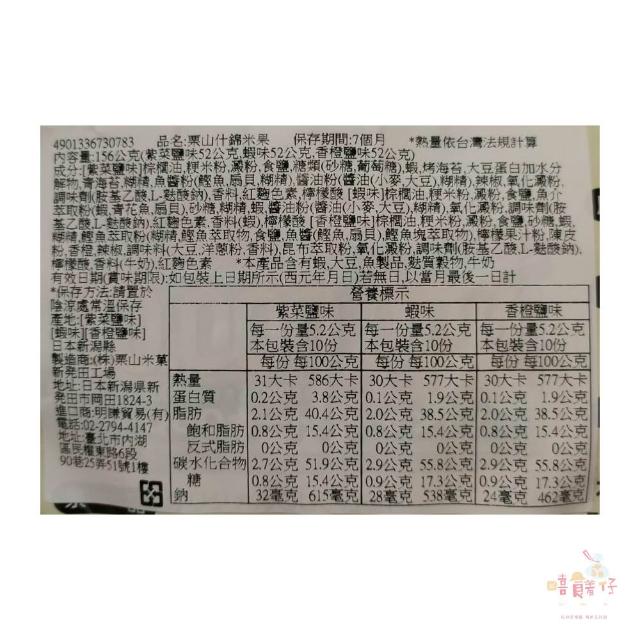 4901336730783 品名:栗山什錦米果 保存期間:7個月 *熱量依台灣法規計算
內容量:156公克(紫菜鹽味52公克,蝦味52公克,香橙鹽味52公克)
成分:[紫菜鹽味]棕櫚油,粳米粉,澱粉,食鹽,糖類(砂糖,葡萄糖),蝦,烤海苔,大豆蛋白加水分
解物,青海苔,糊精,魚醬粉(鰹魚,扇貝,糊精),醬油粉(醬油(小麥,大豆),糊精),辣椒,氧化澱粉,
調味劑(胺基乙酸,L-麩酸鈉),香料,紅麴色素,檸檬酸 [蝦味]棕櫚油,粳米粉,澱粉,食鹽,魚介
萃取粉(蝦,青花魚,扇貝),砂糖,糊精,蝦,醬油粉(醬油(小麥,大豆),糊精),氧化澱粉,調味劑(胺
基乙酸,L-麩酸鈉),紅麴色素,香料(蝦) [香橙鹽味]棕櫚油,粳米粉,澱粉,食鹽,砂糖,蝦,
糊精,鰹魚萃取粉(糊精,鰹魚萃取物,食鹽,魚醬(鰹魚,扇貝),鰹魚塊萃取物),檸檬果汁粉,陳皮
粉,香橙,辣椒,調味料(大豆,洋蔥粉,香料),昆布萃取粉,氧化澱粉,調味劑(胺基乙酸,L-麩酸鈉),
檸檬酸,香料(牛奶),紅麴色素 *本產品含有蝦,大豆,魚製品,麩質穀物,牛奶
有效日期(賞味期限):如包裝上日期所示(西元年月日)若無日,以當月最後一日計
*保存方法:請置於
陰涼處常溫保存
產地:[紫菜鹽味]
[蝦味][香橙鹽味]
日本新潟縣
製造商:(株)栗山米菓
新発田工場
地址:日本新潟県新
発田市岡田1824-3
進口商:明謙貿易(有)
電話:02-2794-4147
地址:臺北市內湖
區民權東路6段
90巷25弄51號1樓
營養標示
紫菜鹽味 蝦味 香橙鹽味
每一份量5.2公克 每一份量5.2公克 每一份量5.2公克
本包裝含10份 本包裝含10份 本包裝含10份
每份 每100公克 每份 每100公克 每份 每100公克
熱量 31大卡 586大卡 30大卡 577大卡 30大卡 577大卡
蛋白質 0.2公克 3.8公克 0.1公克 1.9公克 0.1公克 1.9公克
脂肪 2.1公克 40.4公克 2.0公克 38.5公克 2.0公克 38.5公克
飽和脂肪 0.8公克 15.4公克 0.8公克 15.4公克 0.8公克 15.4公克
反式脂肪 0公克 0公克 0公克 0公克 0公克 0公克
碳水化合物 2.7公克 51.9公克 2.9公克 55.8公克 2.9公克 55.8公克
糖 0.8公克 15.4公克 0.9公克 17.3公克 0.9公克 17.3公克
鈉 32毫克 615毫克 28毫克 538毫克 24毫克 462毫克